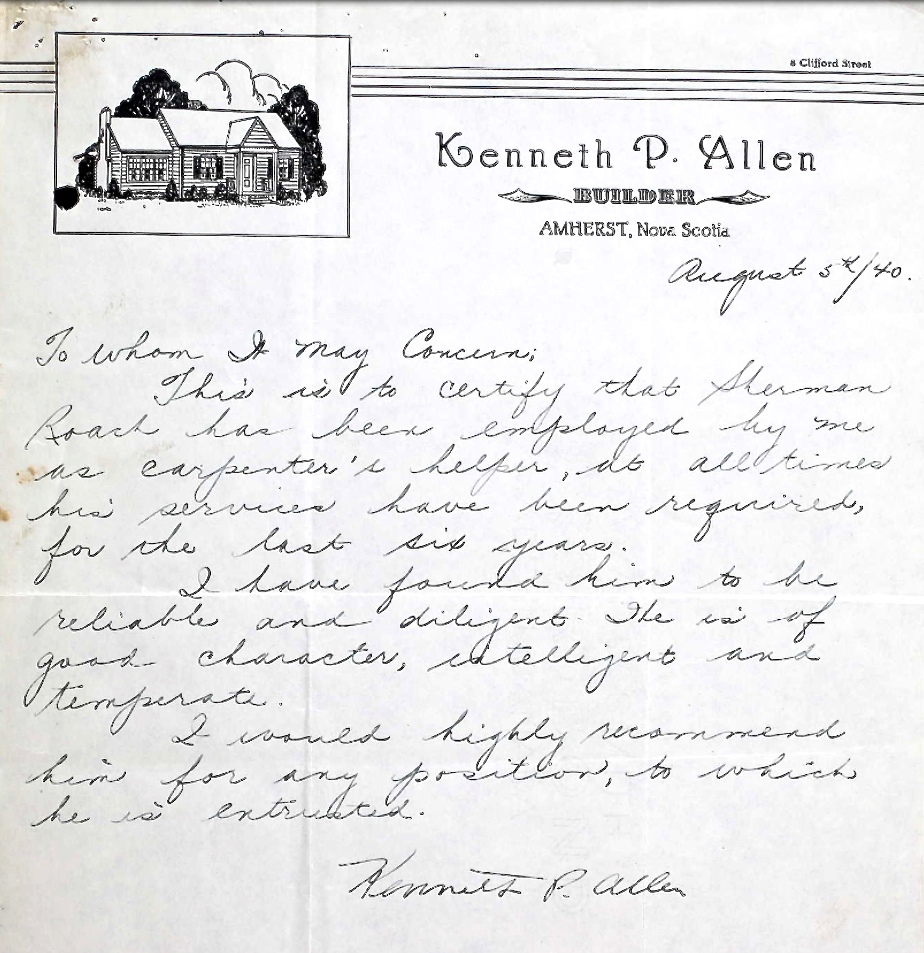 8 Clifford Street
Kenneth P. Allen
BUILDER
AMHERST, Nova Scotia
August 5th/40.
To Whom It May Concern;
This is to certify that Sherman
Roach has been employed by me
as carpenter's helper, at all times
his services have been required,
for the last six years.
I have found him to be
reliable and diligent. He is of
good character, intelligent and
temperate.
I would highly recommend
him for any position, to which
he is entrusted.
Kenneth P. Allen